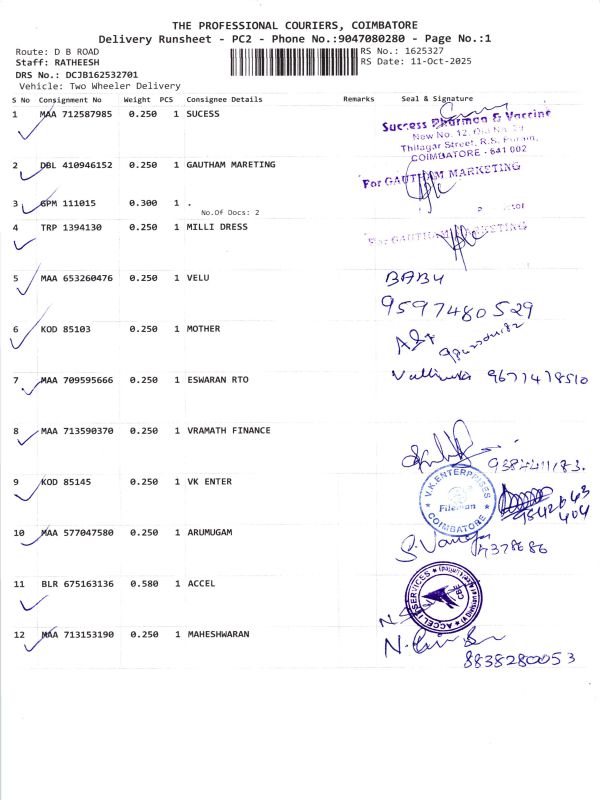 THE PROFESSIONAL COURIERS, COIMBATORE
Delivery Runsheet - PC2 - Phone No.:9047080280 - Page No.:1
Route: D B ROAD
RS No.: 1625327
Staff: RATHEESH
RS Date: 11-Oct-2025
DRS No.: DCJB162532701
Vehicle: Two Wheeler Delivery
S No Consignment No Weight PCS Consignee Details Remarks Seal & Signature
1 MAA 712587985 0.250 1 SUCESS
Success Pharmca & Vaccine
New No. 12, Old No. 29
Thilagar Street, R.S. Puram,
COIMBATORE - 641 002
2 DBL 410946152 0.250 1 GAUTHAM MARETING
For GAUTHAM MARKETING
3 GPM 111015 0.300 1 .
No.Of Docs: 2
4 TRP 1394130 0.250 1 MILLI DRESS
For GAUTHAM MARKETING
5 MAA 653260476 0.250 1 VELU
BABU
9597480529
6 KOD 85103 0.250 1 MOTHER
7 MAA 709595666 0.250 1 ESWARAN RTO
9677478510
8 MAA 713590370 0.250 1 VRAMATH FINANCE
9 KOD 85145 0.250 1 VK ENTER
V.K.ENTERPRISES
COIMBATORE
10 MAA 577047580 0.250 1 ARUMUGAM
11 BLR 675163136 0.580 1 ACCEL
ACCEL IT SERVICES
CBE
12 MAA 713153190 0.250 1 MAHESHWARAN
8838280053